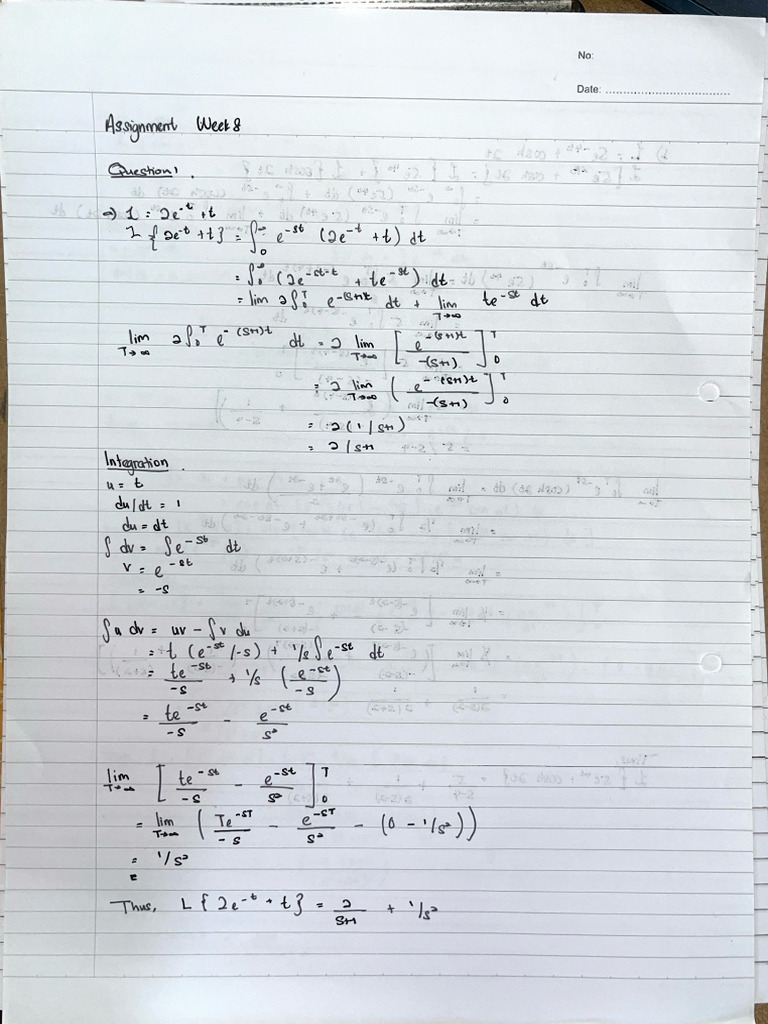 No:
Date: ....................................
Assignment Week 8
Question 1.
⇒ 1 = 2e^-t + t
L {2e^-t + t} = ∫₀^∞ e^-st (2e^-t + t) dt
= ∫₀^∞ (2e^-st-t + te^-st) dt
= lim 2∫₀^T e^-(s+1)t dt + lim T→∞ te^-st dt
lim T→∞ 2∫₀^T e^-(s+1)t dt = 2 lim T→∞ [e^-(s+1)t / -(s+1)]₀^T
= 2 lim T→∞ (e^-(s+1)t / -(s+1)]₀^T
= 2(1/s+1)
= 2/s+1
Integration.
u = t
du/dt = 1
du = dt
∫ dv = ∫e^-st dt
v = e^-st
= -s
∫u dv = uv - ∫v du
= t (e^-st/-s) + 1/s ∫e^-st dt
= te^-st / -s + 1/s (e^-st / -s)
= te^-st / -s - e^-st / s²
lim T→∞ [te^-st / -s - e^-st / s²]₀^T
= lim T→∞ (Te^-sT / -s - e^-sT / s² - (0 - 1/s²))
= 1/s²
=
Thus, L{2e^-t + t} = 2 / s+1 + 1/s²